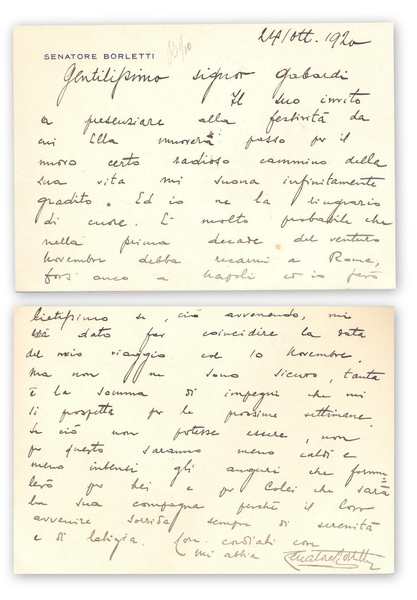 24/ott. 1920
SENATORE BORLETTI
Gentilissimo signor Gabardi
Il suo invito
a presenziare alla festività da
cui Ella muoverà passo per il
nuovo certo radioso cammino della
sua vita mi suona infinitamente
gradito. Ed io ne la ringrazio
di cuore. È molto probabile che
nella prima decade del venturo
Novembre debba recarmi a Roma,
fors'anco a Napoli ed io sarò
lietissimo se, ciò avvenendo, mi
sia dato far coincidere la data
del mio viaggio col 10 Novembre.
Ma non ne sono sicuro, tanta
è la somma di impegni che mi
si prospetta per le prossime settimane.
Se ciò non potesse essere, non
per questo saranno meno caldi e
meno intensi gli auguri che formu=
lerò per Lei e per Colei che sarà
la sua compagna perché il loro
avvenire sorrida sempre di serenità
e di letizia. Con cordiali
mi abbia Senatore Borletti